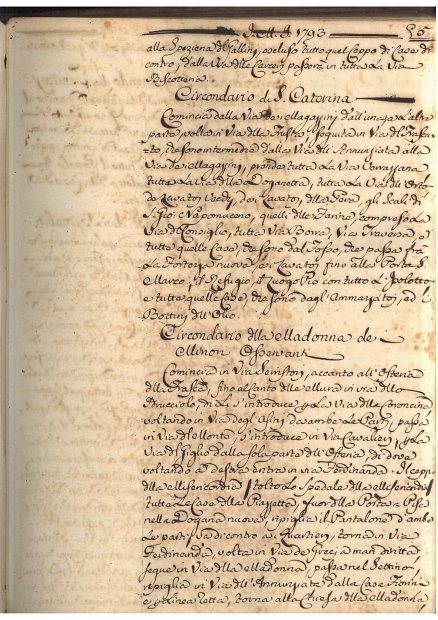 1793
alla Speziena di Gallini, escluso tutto quel Ceppo di Case di
contro, dalla Via dlle Carceri passerà in tutta la Via
Biscotterie.
Circondario di S. Caterina
Comincia dalla Via de Mllagazzini dall'una, e l'altra
parte, volta in Via dlle, seguita in Via di
to, che sono intermedie dalla Via dll'Annunziata alla
Via de Mllagazzini, prende tutta la Via Verrazzana
tutta la Via dlla Doganetta, tutta la Via dll'Orto
de Lavatoj Vecchj, dei Lavatoj, dlla Pera, gli Scali di
S. Gio: Nepomuceno, quelli dlle Farine, compreso la
Via del Consiglio, tutta Via Borra, Via Traversa e
tutte quelle Case, che sono dal Fosso, che passa fra
la Fortezza nuova, ei Lavatoj fino alla Porta S.
Marco, il Refugio, il Luogo Pio con tutto l'Isolotto
e tutte quelle Case, che sono dagli Ammazzatoj, ed i
Bottini dll'Olio.
Circondario dlla Mlladonna de
Minori Osservanti
Comincia in Via, accanto all'Osteria
dlla Frasca, fino al Canto dlle Mllura in via dllo
Struccciolo, di lì s'introduce p la Via dlla Coroncina
voltando in Via degl'Asini da ambe le Parti, passa
in Via dl Monte, s'introduce in Via Cavalieri, p la
Via dl Giglio dalla sola parte dll'Osteria, di dove
voltando a destra entra in via Ferdinanda. Il ceppo
dlla Misericordia (tolto lo Spedale dlla Misericordia)
tutte le Case dlla Piazzetta, fuor dlla Porta a Pisa
nella Dogana nuova, ripiglia il Pantalone d'ambe
le parti, va di contro a Quartieri, torna in Via
Ferdinanda, volta in Via de Greci a man diritta
segue in Via dlla Mlladonna, passa nel Bettino,
ripiglia in Via dll'Annunziata dalle Case
e p linea retta, torna alla Chiesa dlla Mlladonna,